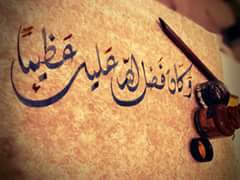 وكان فضل الله عليك عظيما